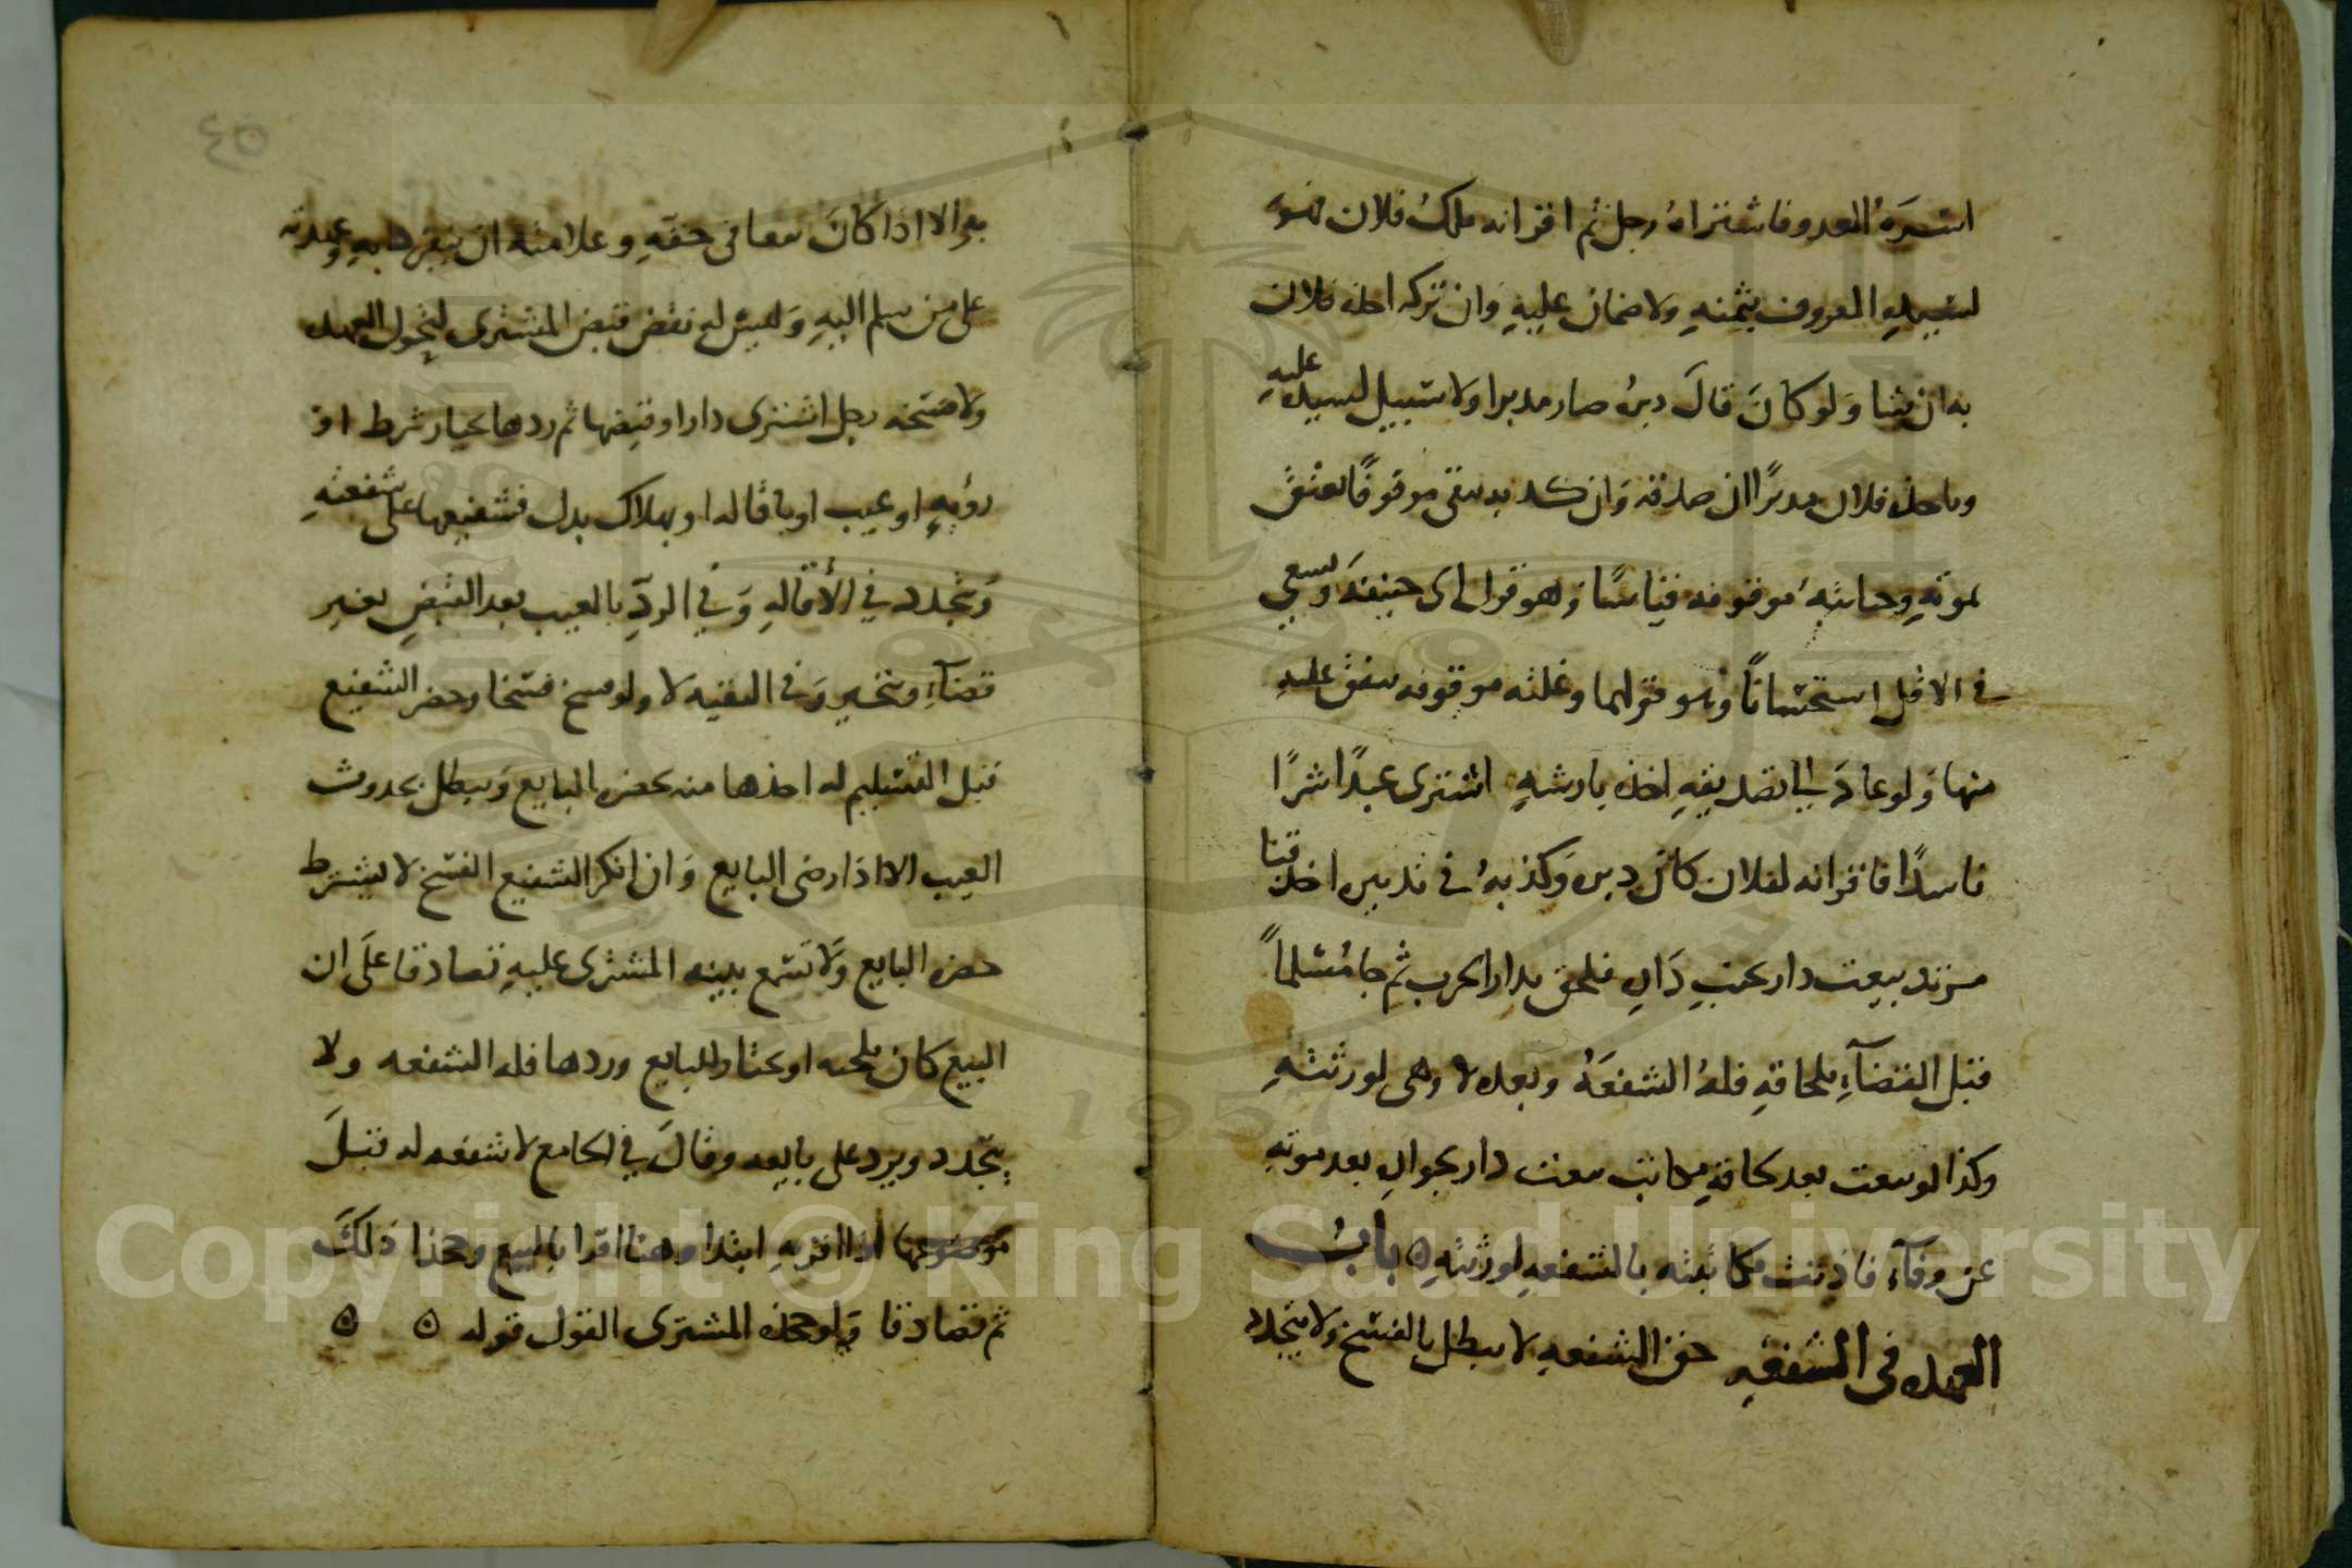 اشتره العدو فاشتراه رجل ثم اقر انه ملك فلان فهو
لسيده المعروف بثمنه ولا ضمان عليه وان تركه اخذه فلان
به ان شا ولو كان قال دبره صار مدبرا ولا سبيل لسيده عليه
وياخذه فلان مدبرًا ان صدقه وان كذبه بقى موقوفًا يعتق
بموته وجنايته موقوفه قياسًا وهو قول ابى حنيفه ويسعى
فى الاقل استحسانًا وهو قولهما وغلته موقوفه ينفق عليه
منها ولو عاد الى تصديقه اخذه بارشه اشترى عبدًا شرًا
فاسدًا فاقر انه لفلان كان دبره وكذبه فى تدبيره اخذه قنا
مرتد بيعت دار بجنب داره فلحق بدار الحرب ثم جا مسلماً
قبل القضآء بلحاقه فله الشفعه وبعده لا وهى لورثته
وكذا لو بيعت بعد لحاقه مكاتب بيعت دار بجواره بعد موته
عن وفآء فاديت مكاتبته بالشفعه لورثته ۵ باب
العهده فى الشفعه حق الشفعه لا يبطل بالفسخ ولا يتجدد
به الا اذا كان بيعا فى حقه وعلامته ان ينفردا به وعهدته
على من سلم اليه وليس له نقض قبض المشترى ليتحول العهده
ولا فسخه رجل اشترى دارا وقبضها ثم ردها بخيار شرط او
رؤيه او عيب او باقاله او بهلاك بدل فشفيعها على شفعته
وتتجدد في الأقاله وفي الرد بالعيب بعد القبض بغير
قضآء وتخير وفى البقيه لا ولو فسخ فسخا وحضر الشفيع
قبل التسليم له اخذها منه بحضره البايع ويبطل بحدوث
العيب الا اذا رضى البايع وان انكر الشفيع الفسخ لا يشترط
حضره البايع ولا تسمع بينه المشترى عليه تصادقا على ان
البيع كان تلجئه او بخيار للبايع وردها فله الشفعه ولا
يتجدد ويرد على بايعه وقال في الجامع لا شفعه له قبل
موضوعها اذا اقر به ابتدا وهنا اقرا بالبيع وجحدا ذلك
ثم تصادقا ولو جحده المشترى القول قوله ۵ ۵
٤٥
Copyright © King Saud University
1957